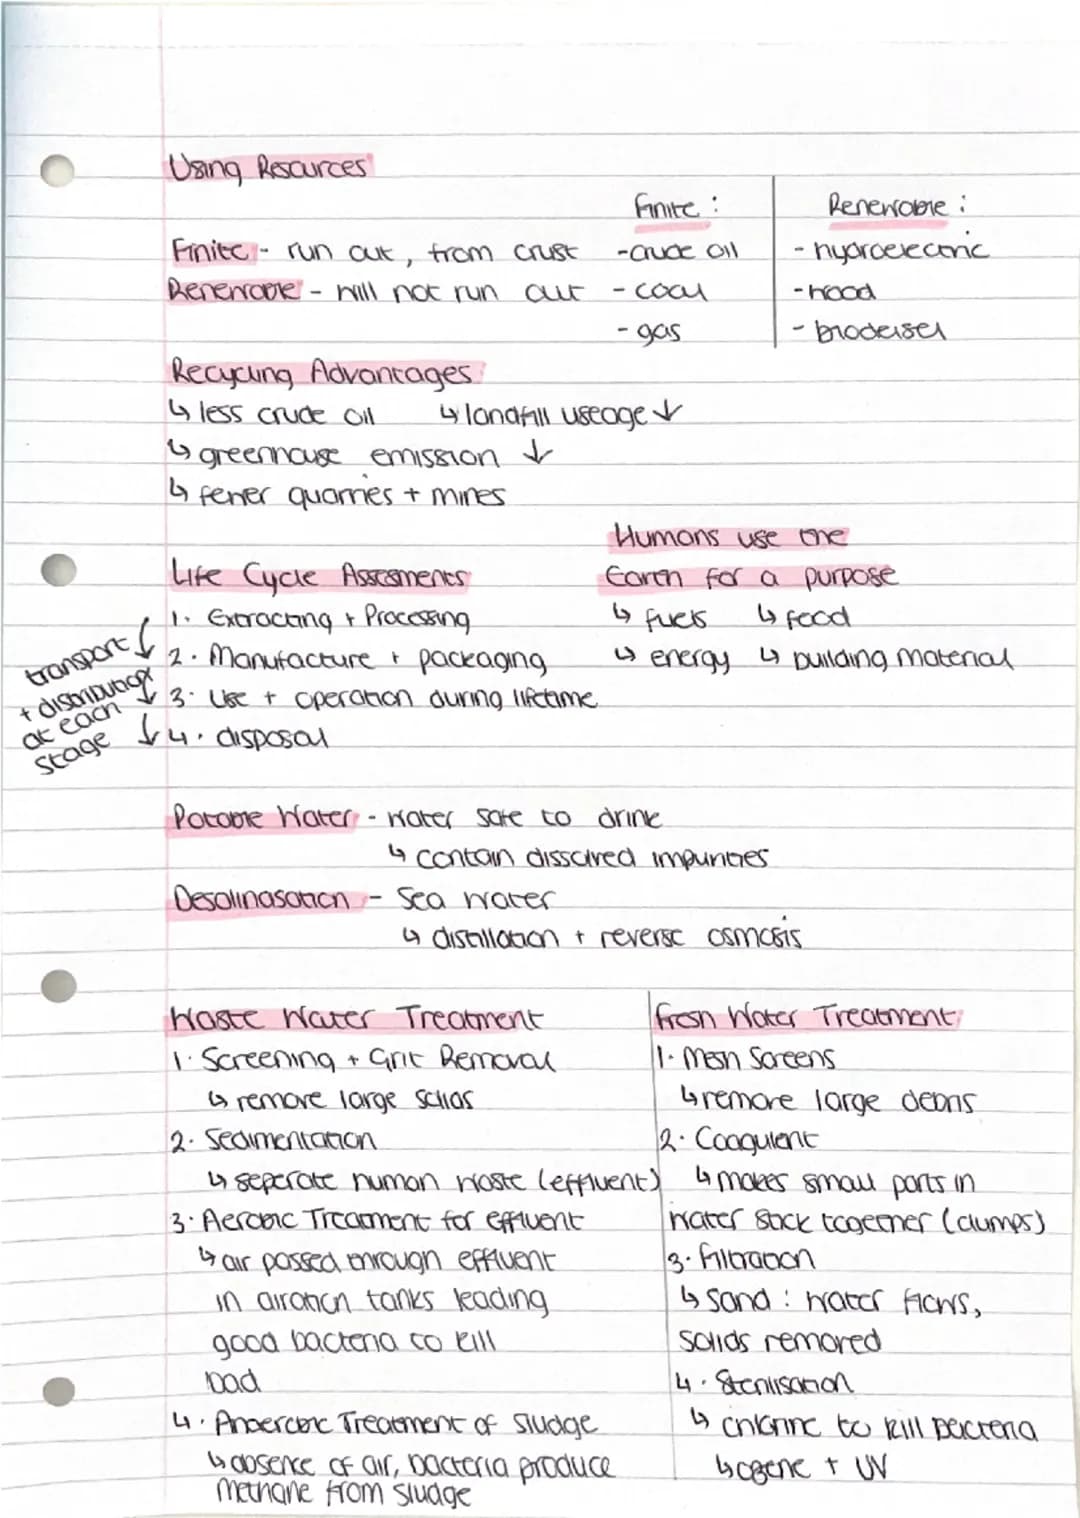 Using Resources
Finite :
Renewable :
Finite - run out, from crust
- crude oil
- hydroelectric
Renewable - will not run out
- coal
- wood
- gas
- biodeisel
Recycling Advantages
↳ less crude oil ↳ landfill useage ↓
↳ greenhouse emission ↓
↳ fewer quarries + mines
Humans use the
Earth for a purpose
↳ fuels ↳ food
↳ energy ↳ building material
Life Cycle Assesments
1. Extracting + Processing
2. Manufacture + packaging
3. Use + operation during lifetime
4. disposal
transport
+ distribution
at each
stage
Potable Water - water safe to drink
↳ contain dissolved impurities
Desalinasation - Sea water
↳ distillation + reverse osmosis
Waste Water Treatment
1. Screening + Grit Removal
↳ remove large solids
2. Sedimentation
↳ seperate human waste (effluent)
3. Aerobic Treatment for effluent
↳ air passed through effluent
in airation tanks leading
good bacteria to kill
bad
4. Anaerobic Treatment of Sludge
↳ absence of air, bacteria produce
methane from sludge
Fresh Water Treatment
1. Mesh Screens
↳ remove large debris
2. Coagulent
↳ makes small parts in
water stick together (clumps)
3. Filtration
↳ Sand : water flows,
solids removed
4. Sterilisation
↳ chlorine to kill bacteria
↳ ozone + UV